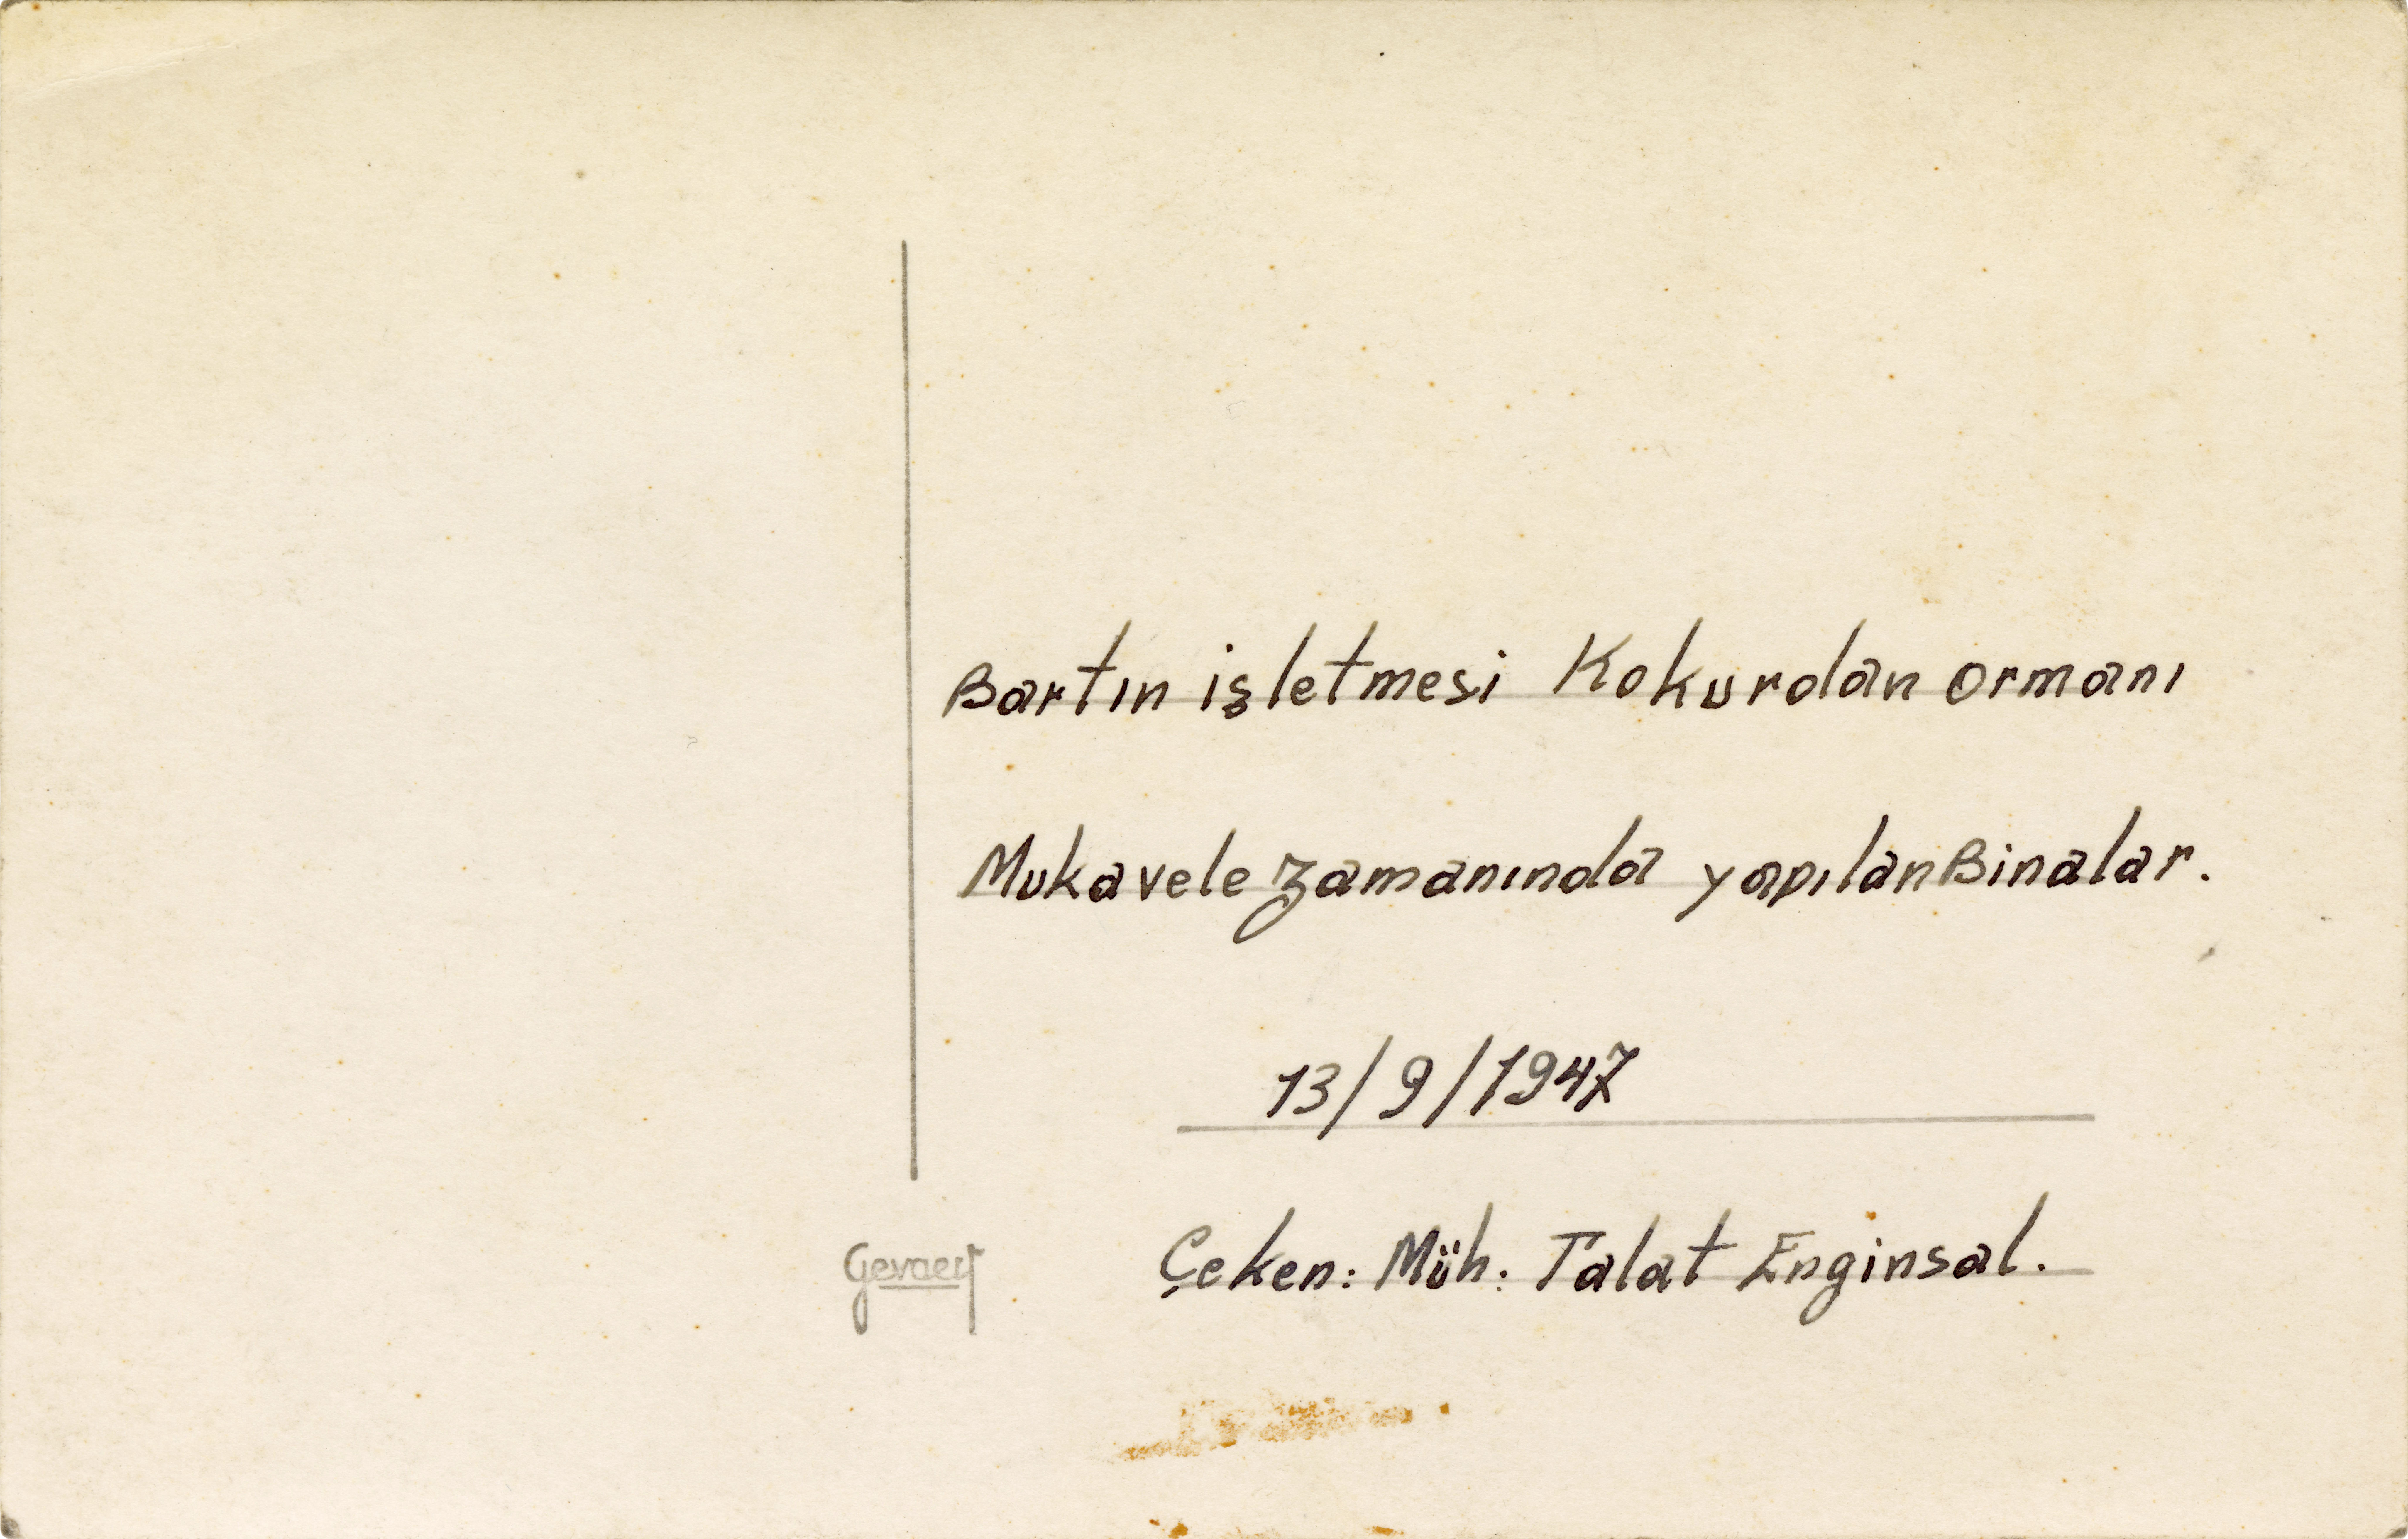 Bartın işletmesi Kokurdan ormanı
Mukavele zamanında yapılan Binalar.
13/9/1947
Çeken: Müh: Talat Enginsal.
Gevaert